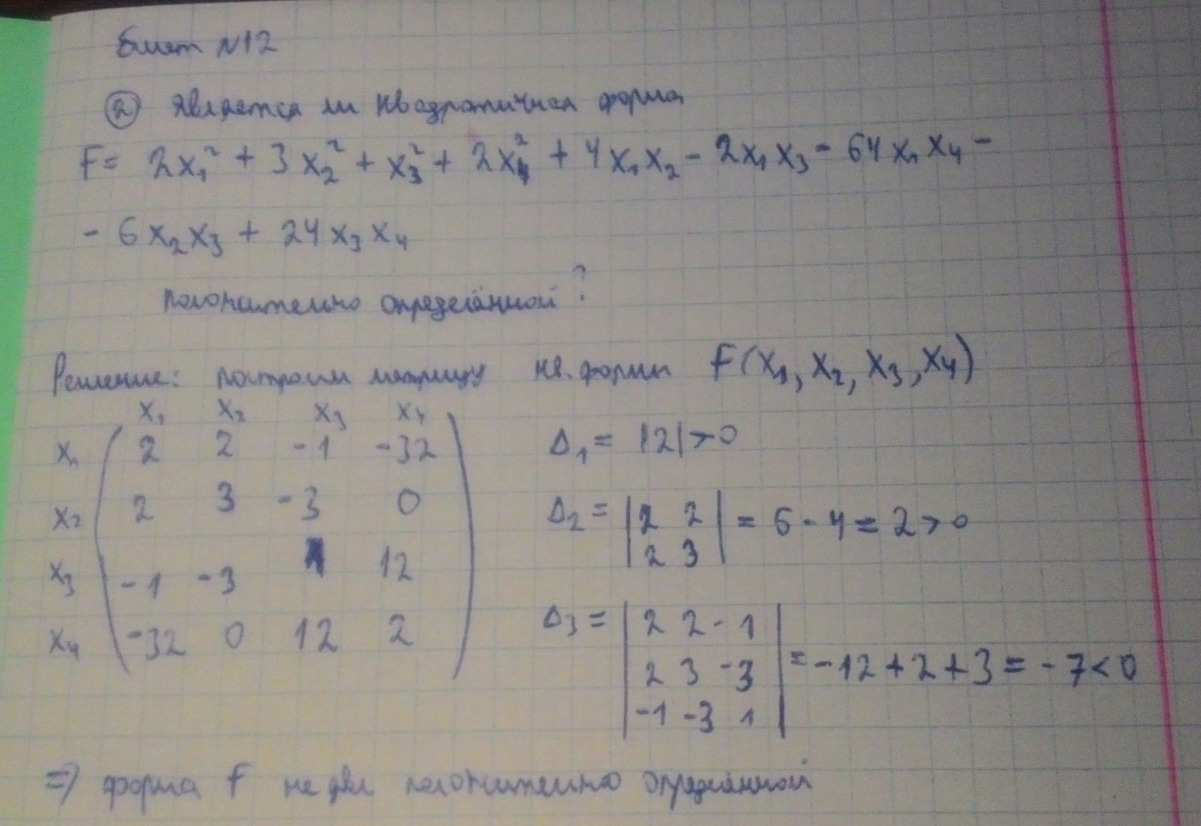 Билет №12
② является ли квадратичная форма
F= 2x₁² + 3x₂² + x₃² + 2x₄² + 4x₁x₂ - 2x₁x₃ - 64x₁x₄ -
- 6x₂x₃ + 24x₃x₄
положительно определённой?
Решение: построим матрицу кв. формы F(x₁, x₂, x₃, x₄)
x₁ x₂ x₃ x₄
x₁ 2 2 -1 -32
x₂ 2 3 -3 0
x₃ -1 -3 1 12
x₄ -32 0 12 2
Δ₁ = |2| > 0
Δ₂ = |2 2| = 6 - 4 = 2 > 0
2 3
Δ₃ = |2 2 -1|
2 3 -3 = -12 + 2 + 3 = -7 < 0
-1 -3 1
=> форма F не явл положительно определённой